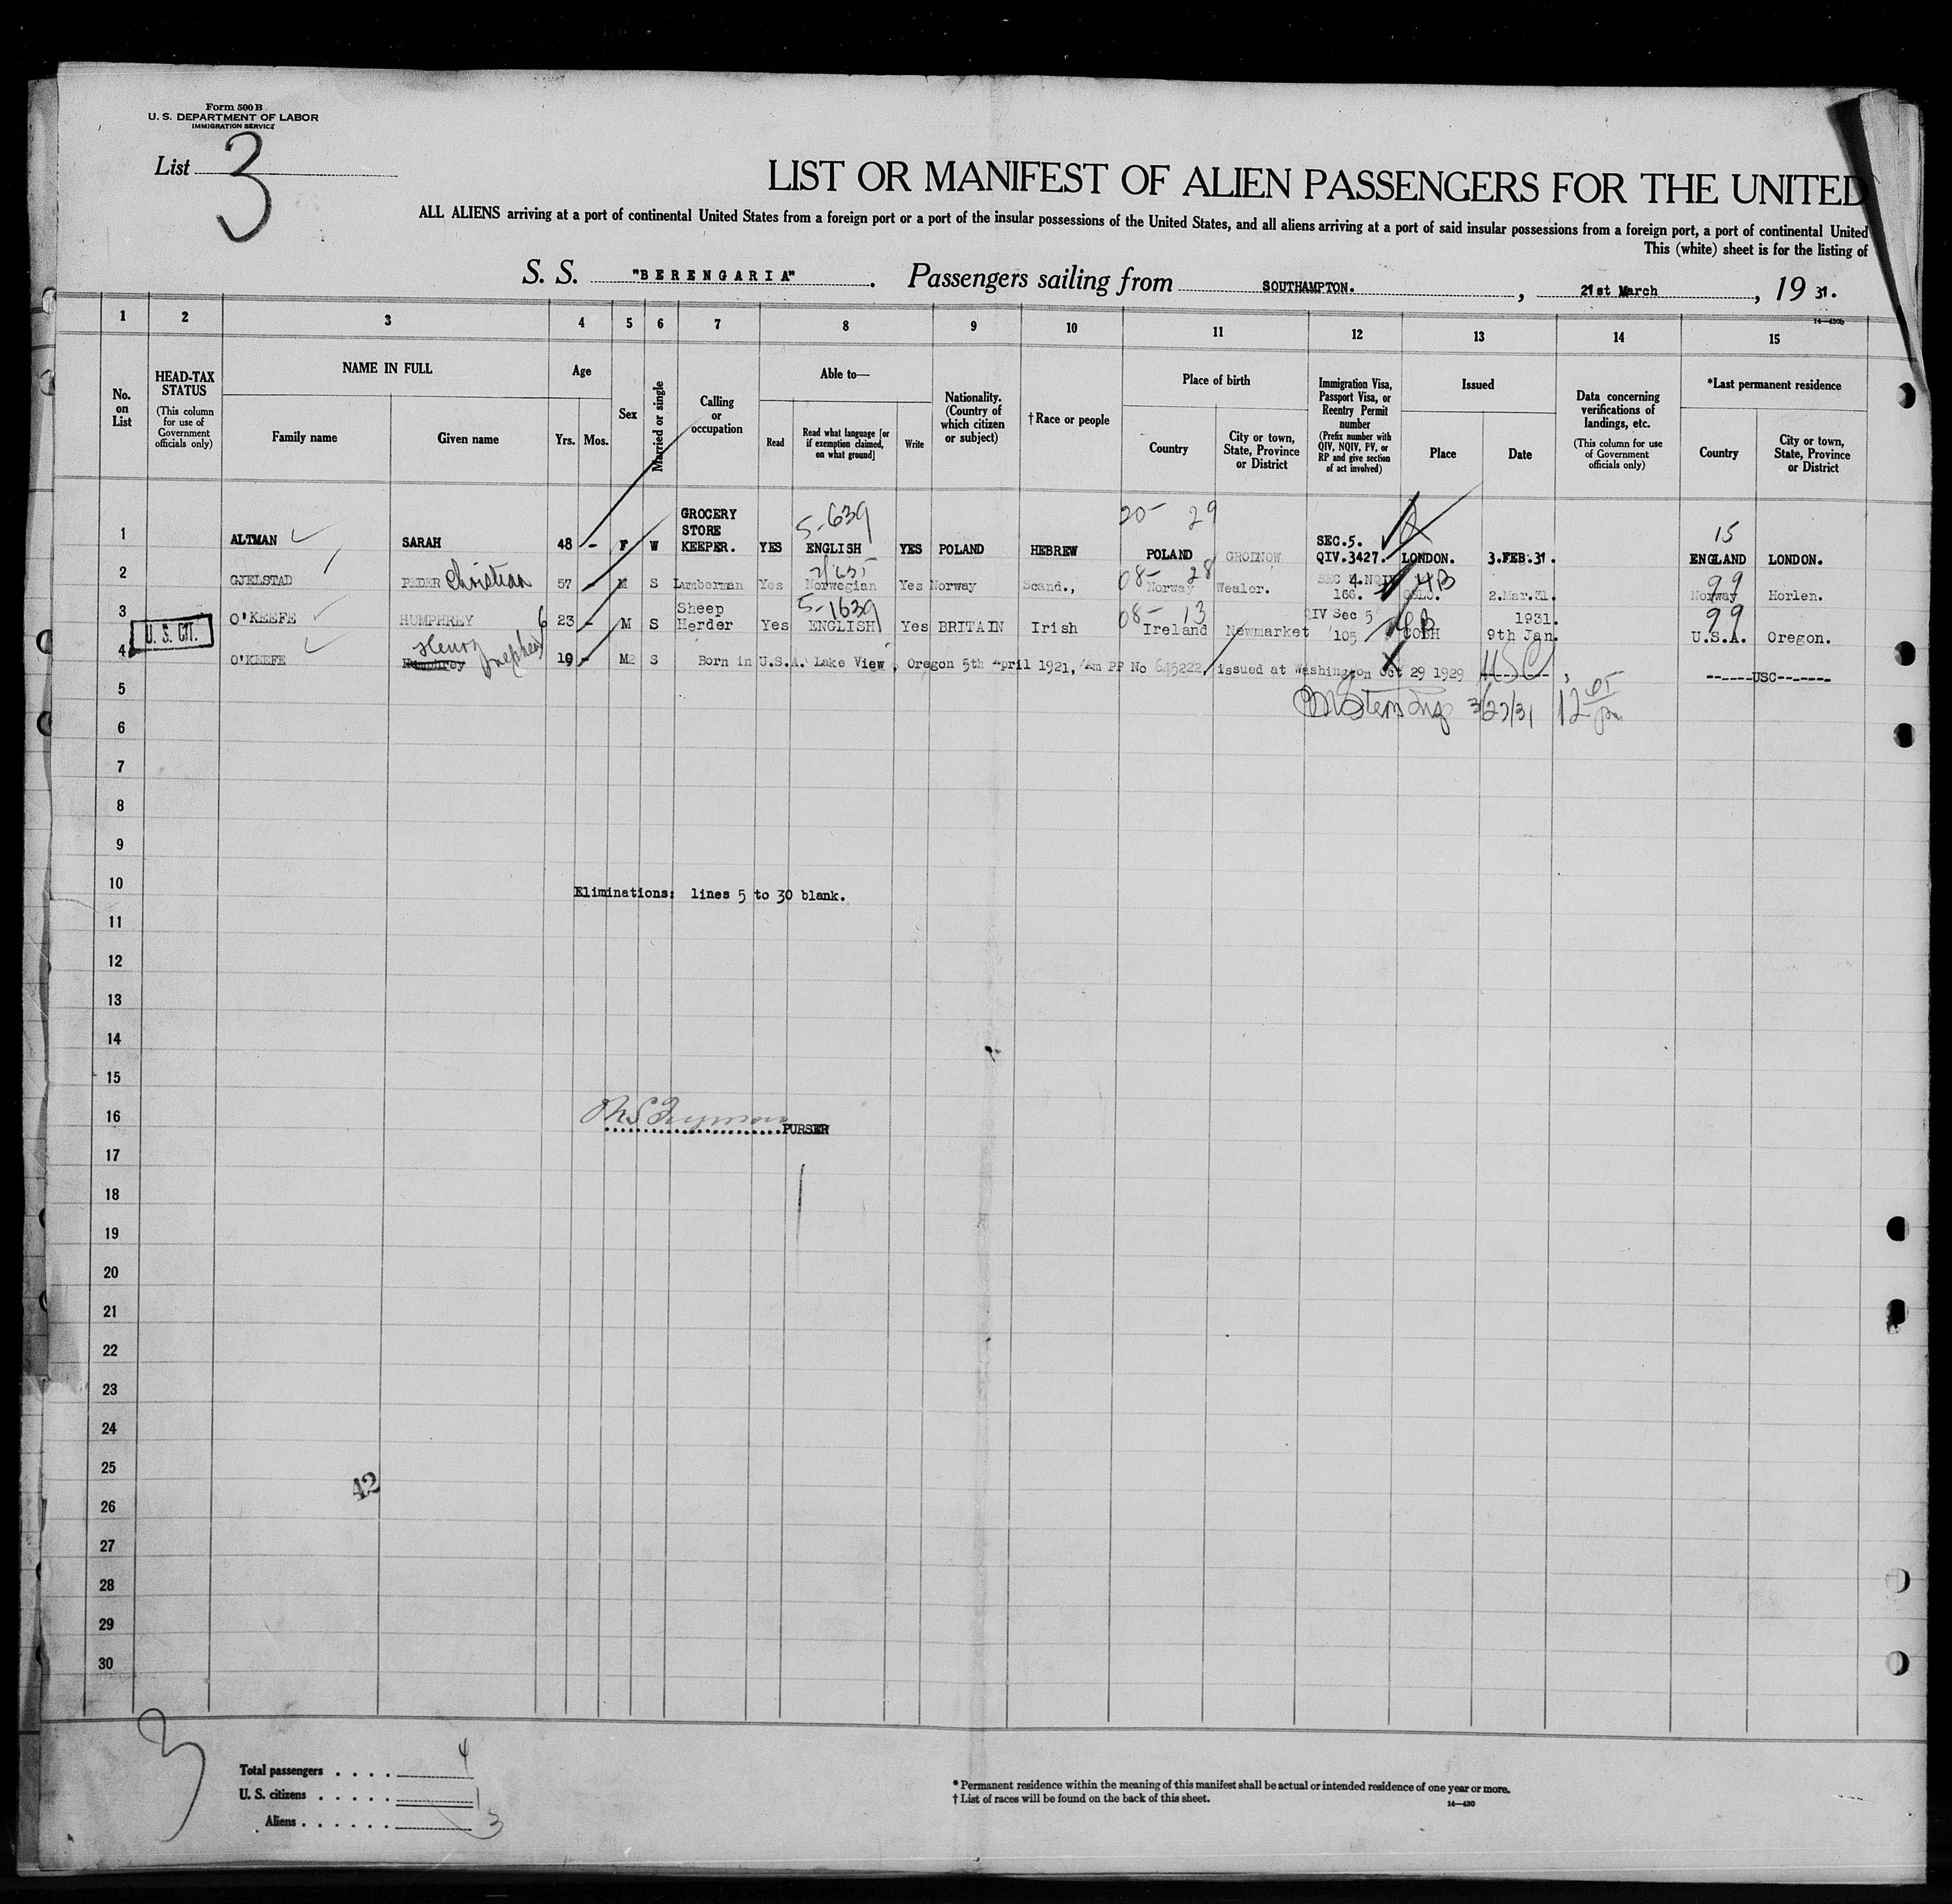 Form 500 B
U. S. DEPARTMENT OF LABOR
IMMIGRATION SERVICE
List 3
LIST OR MANIFEST OF ALIEN PASSENGERS FOR THE UNITED
ALL ALIENS arriving at a port of continental United States from a foreign port or a port of the insular possessions of the United States, and all aliens arriving at a port of said insular possessions from a foreign port, a port of continental United
This (white) sheet is for the listing of
S. S. "BERENGARIA". Passengers sailing from SOUTHAMPTON., 21st March, 19 31.
14—430b
1 2 3 4 5 6 7 8 9 10 11 12 13 14 15
No. on List
HEAD-TAX STATUS (This column for use of Government officials only)
NAME IN FULL
Family name Given name
Age
Yrs. Mos.
Sex
Married or single
Calling or occupation
Able to—
Read Read what language [or if exemption claimed, on what ground] Write
Nationality. (Country of which citizen or subject)
†Race or people
Place of birth
Country City or town, State, Province or District
Immigration Visa, Passport Visa, or Reentry Permit number (Prefix number with QIV, NQIV, PV, or RP and give section of act involved)
Issued
Place Date
Data concerning verifications of landings, etc. (This column for use of Government officials only)
*Last permanent residence
Country City or town, State, Province or District
5-639 20- 29 15
1 ALTMAN SARAH 48 - F W GROCERY STORE KEEPER. YES ENGLISH YES POLAND HEBREW POLAND GROINOW SEC.5. QIV.3427. LONDON. 3.FEB.31. ENGLAND LONDON.
08- 28 99
2 GJELSTAD PEDER Christian 57 - M S Lumberman Yes Norwegian Yes Norway Scand., Norway Wealer. SEC 4.NQIV 166. OSLO. 2.Mar.31. Norway Horlen.
5-1639 08- 13 99
3 O'KEEFE HUMPHREY 23 - M S Sheep Herder Yes ENGLISH Yes BRITAIN Irish Ireland Newmarket QIV Sec 5 105 COBH 9th Jan. 1931. U.S.A. Oregon.
U. S. CIT.
Henry Joseph
4 O'KEEFE Humphrey 19 - M S Born in U.S.A. Lake View, Oregon 5th April 1921, Am PP No 645222, issued at Washington Oct 29 1929 USC ------USC------
5 3/27/31 12 05 pm
6
7
8
9
10 Eliminations: lines 5 to 30 blank.
11
12
13
14
15
16 PURSER
17
18
19
20
21
22
23
24
25
42
26
27
28
29
30
3
Total passengers . . . . 4
U. S. citizens . . . . . 1
Aliens . . . . . . 3
* Permanent residence within the meaning of this manifest shall be actual or intended residence of one year or more.
† List of races will be found on the back of this sheet.
14—430